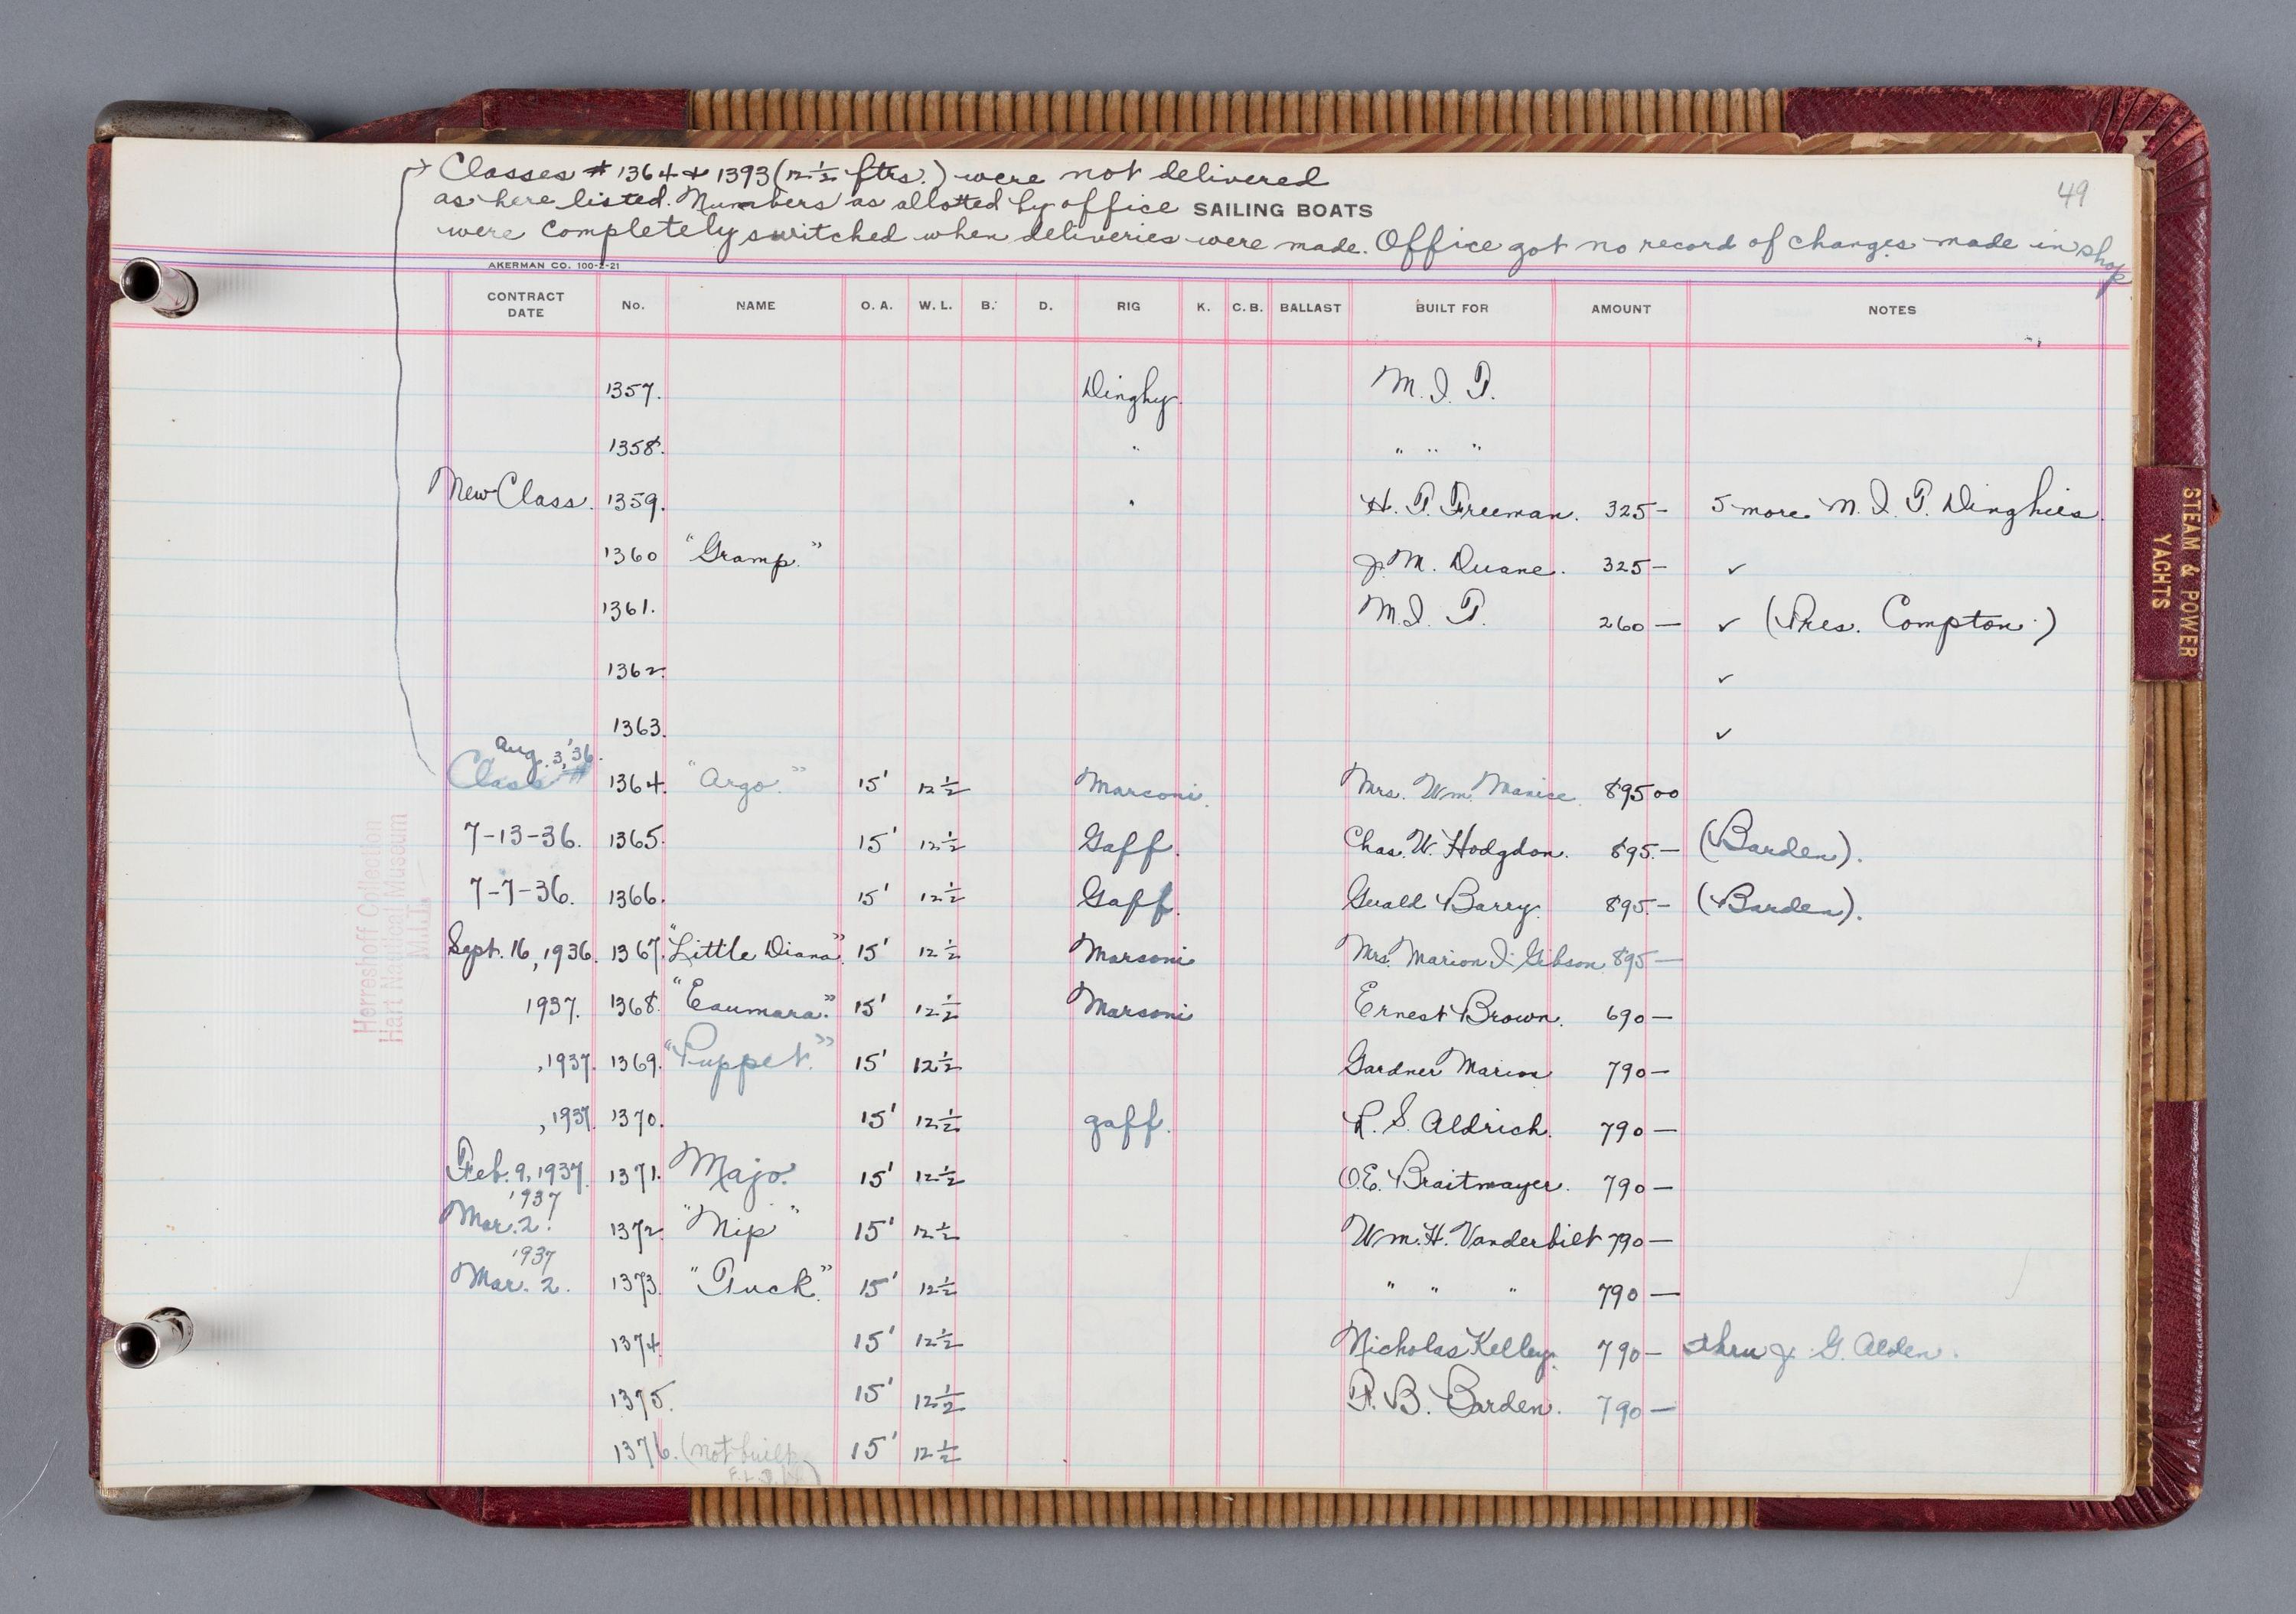 Classes # 1364 & 1393 (12½ ftrs.) were not delivered
49
as here listed. Numbers as allotted by office SAILING BOATS
were completely switched when deliveries were made. Office got no record of changes made in shop
AKERMAN CO. 100-2-21
CONTRACT DATE No. NAME O. A. W. L. B. D. RIG K. C. B. BALLAST BUILT FOR AMOUNT NOTES
1357. Dinghy M. I. T.
1358. " " " "
New Class. 1359. " H. T. Freeman. 325- 5 more M. I. T. Dinghies.
1360 "Gramp." J. M. Duane. 325- ✓
1361. M. I. T. 260 - ✓ (Pres. Compton.)
1362. ✓
1363. ✓
Aug. 3, '36.
Class # 1364. "Argo." 15' 12½ Marconi. Mrs. Wm. Manice 895 00
7-13-36. 1365. 15' 12½ Gaff. Chas. W. Hodgdon. 895.- (Barden).
7-7-36. 1366. 15' 12½ Gaff. Gerald Barry. 895.- (Barden).
Sept. 16, 1936. 1367. "Little Diana". 15' 12½ Marconi Mrs. Marion I. Gibson 895-
1937. 1368. "Eaumara." 15' 12½ Marconi Ernest Brown. 690-
,1937. 1369. "Puppet." 15' 12½ Gardner 790-
,1937. 1370. 15' 12½ gaff. R. S. Aldrich. 790-
Feb. 9, 1937. 1371. Majo. 15' 12½ O.E. Braitmayer. 790-
1937
Mar. 2. 1372. "Nip" 15' 12½ Wm. H. Vanderbilt 790-
1937
Mar. 2. 1373. "Tuck." 15' 12½ " " " 790-
1374. 15' 12½ Nicholas Kelley. 790- thru J. G. Alden.
1375. 15' 12½ F. B. Barden. 790-
1376. (not built 15' 12½
STEAM & POWER
YACHTS
Herreshoff Collection
Hart Nautical Museum
M.I.T.